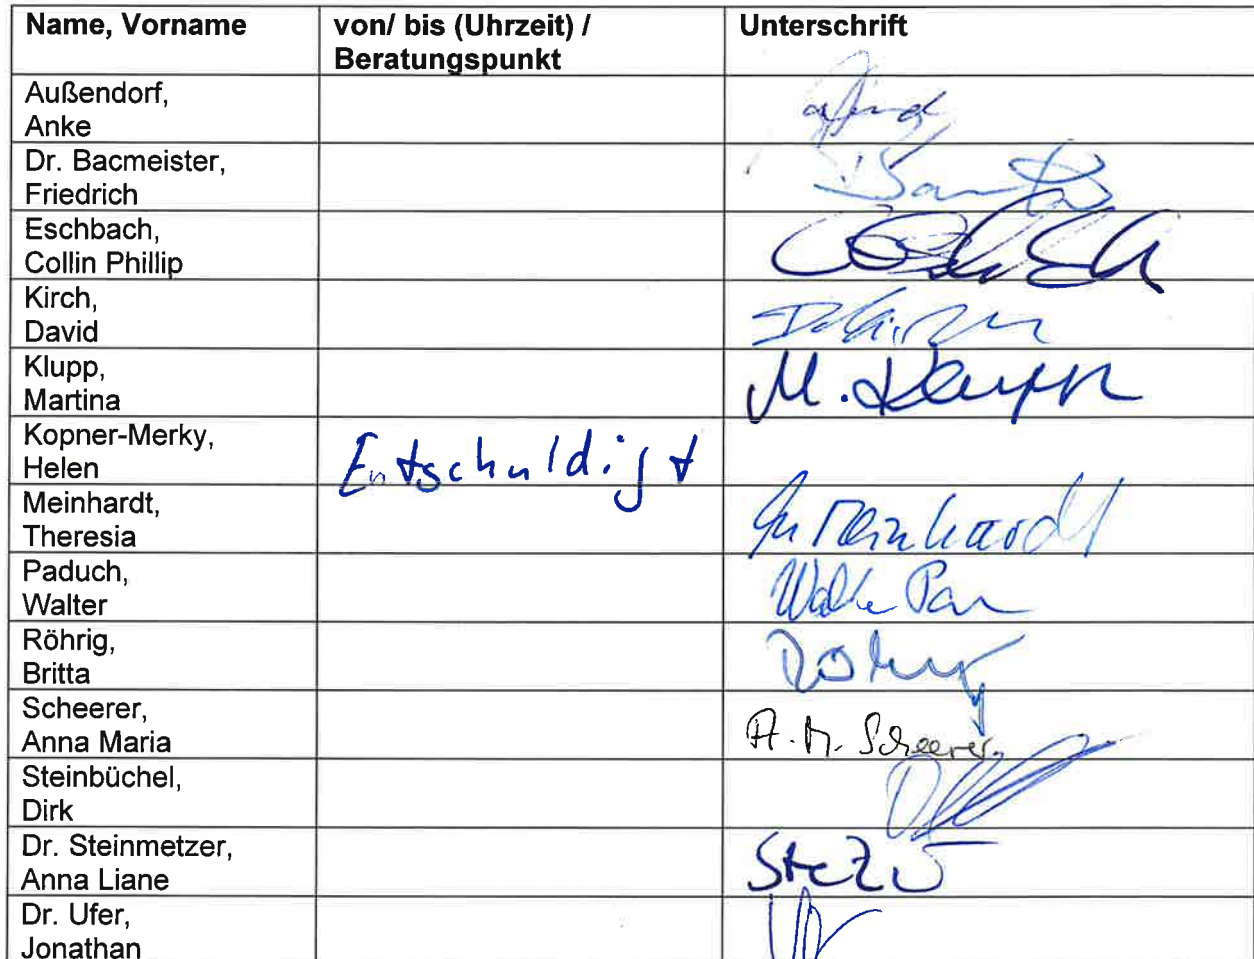 Name, Vorname von/ bis (Uhrzeit) / Unterschrift
Beratungspunkt
Außendorf,
Anke
Dr. Bacmeister,
Friedrich
Eschbach,
Collin Phillip
Kirch,
David
Klupp,
Martina M. Klupp
Kopner-Merky,
Helen Entschuldigt
Meinhardt,
Theresia Meinhardt
Paduch,
Walter
Röhrig,
Britta
Scheerer,
Anna Maria A. M. Scheerer
Steinbüchel,
Dirk
Dr. Steinmetzer,
Anna Liane
Dr. Ufer,
Jonathan